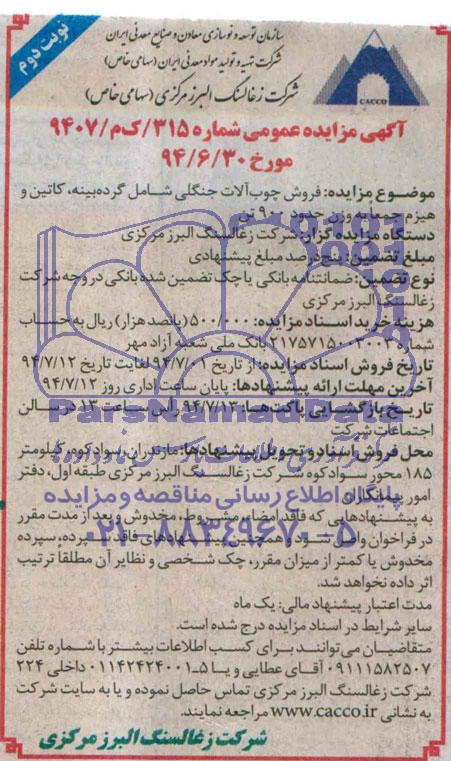 نوبت دوم
سازمان توسعه و نوسازی معادن و صنایع معدنی ایران
شرکت تهیه و تولید مواد معدنی ایران (سهامی خاص)
شرکت زغالسنگ البرز مرکزی (سهامی خاص)
CACCO
آگهی مزایده عمومی شماره ۳۱۵/ک‌م/۹۴۰۷
مورخ ۹۴/۶/۳۰
موضوع مزایده: فروش چوب‌آلات جنگلی شامل گرده‌بینه، کاتین و
هیزم جمعاً به وزن حدود ۹۰۰ تن
دستگاه مزایده گزار: شرکت زغالسنگ البرز مرکزی
مبلغ تضمین: پنج درصد مبلغ پیشنهادی
نوع تضمین: ضمانتنامه بانکی یا چک تضمین شده بانکی در وجه شرکت
زغالسنگ البرز مرکزی
هزینه خرید اسناد مزایده: ۵۰۰/۰۰۰ (پانصد هزار) ریال به حساب
شماره ۲۱۷۵۷۱۵۰۰۲۰۰۳ بانک ملی شعبه آزاد مهر
تاریخ فروش اسناد مزایده: از تاریخ ۹۴/۷/۰۱ لغایت تاریخ ۹۴/۷/۱۲
آخرین مهلت ارائه پیشنهادها: پایان ساعت اداری روز ۹۴/۷/۱۲
تاریخ بازگشایی پاکت‌ها: ۹۴/۷/۱۳ رأس ساعت ۱۳ در سالن
اجتماعات شرکت
محل فروش اسناد و تحویل پیشنهادها: مازندران، سوادکوه، کیلومتر
۱۸۵ محور سوادکوه شرکت زغالسنگ البرز مرکزی طبقه اول، دفتر
امور پیمانکاران
به پیشنهادهایی که فاقد امضاء، مشروط، مخدوش و بعد از مدت مقرر
در فراخوان واصل شود و همچنین پیشنهادهای فاقد سپرده، سپرده
مخدوش یا کمتر از میزان مقرر، چک شخصی و نظایر آن مطلقاً ترتیب
اثر داده نخواهد شد.
مدت اعتبار پیشنهاد مالی: یک ماه
سایر شرایط در اسناد مزایده درج شده است.
متقاضیان می‌توانند برای کسب اطلاعات بیشتر با شماره تلفن
۰۹۱۱۱۵۸۲۵۰۷ آقای عطایی و یا ۵-۰۱۱۴۲۴۲۴۰۰۱ داخلی ۲۲۴
شرکت زغالسنگ البرز مرکزی تماس حاصل نموده و یا به سایت شرکت
به نشانی www.cacco.ir مراجعه نمایند.
شرکت زغالسنگ البرز مرکزی
ParsNamadData
پایگاه اطلاع رسانی مناقصه و مزایده
۰۲۱-۸۸۳۴۹۶۷۰-۵